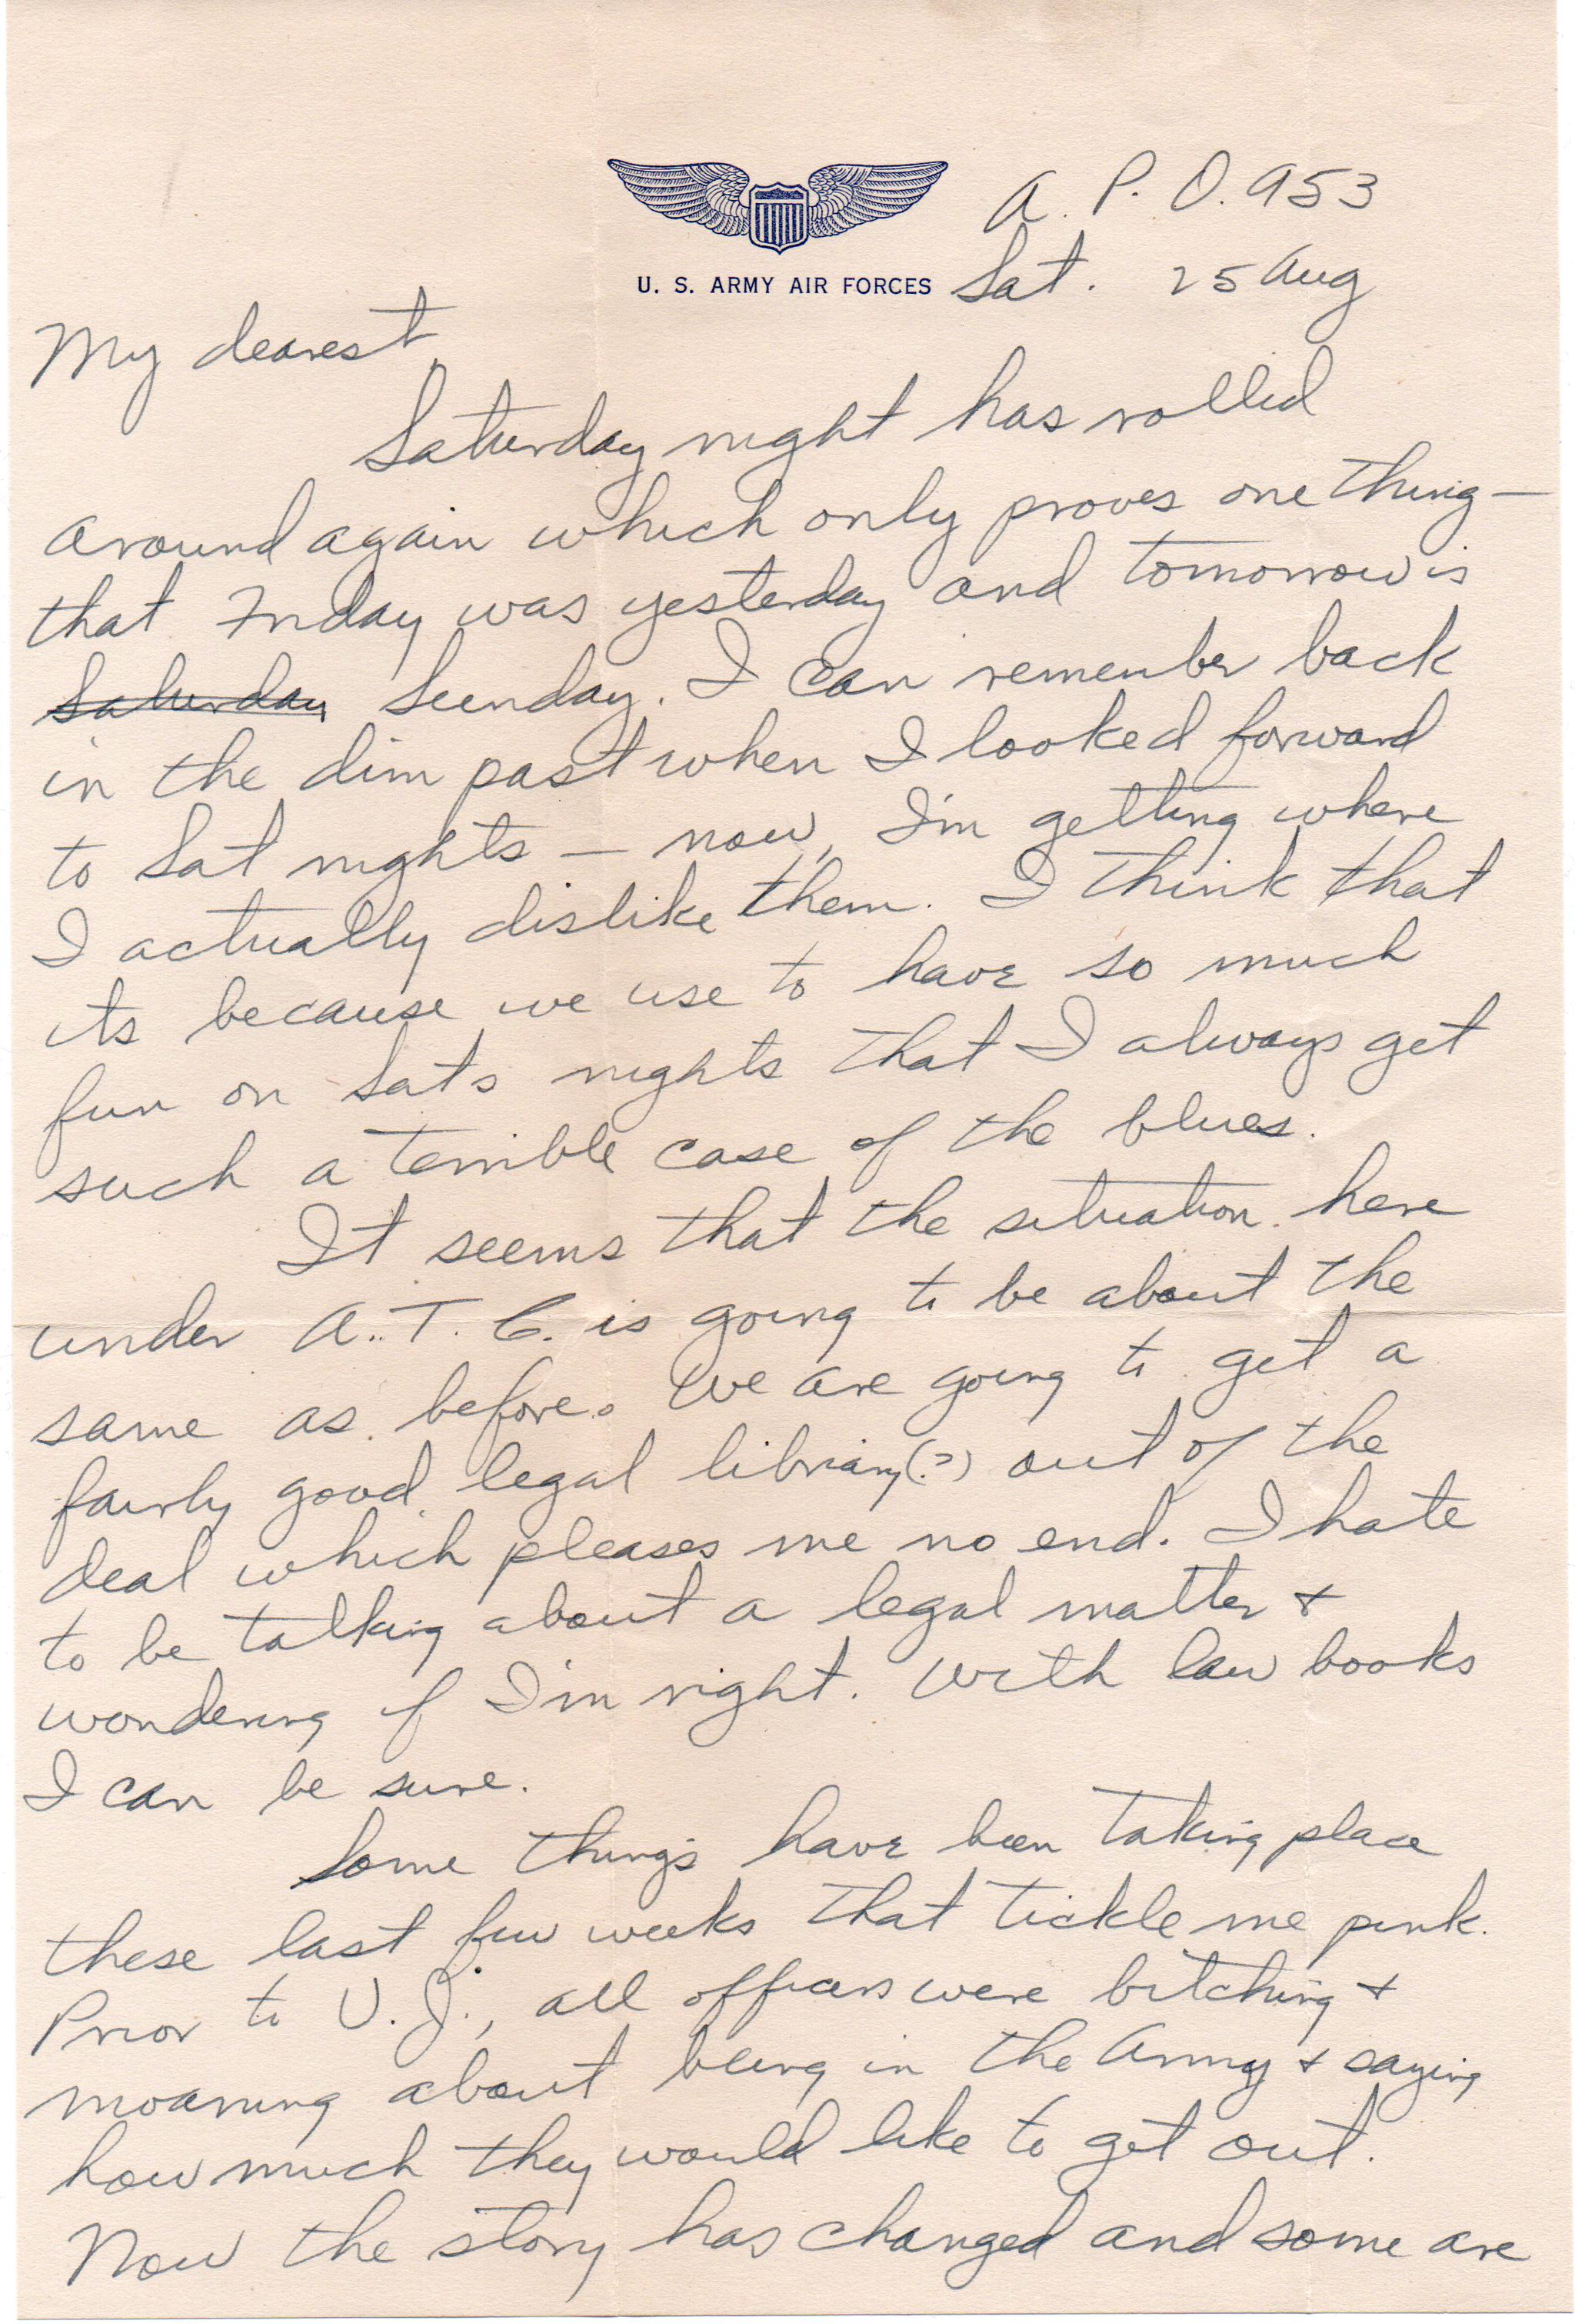 A. P. O. 953
U. S. ARMY AIR FORCES Sat. 25 Aug
My dearest,
Saturday night has rolled
around again which only proves one thing —
that Friday was yesterday and tomorrow is
Saturday Sunday. I can remember back
in the dim past when I looked forward
to Sat nights — now, I'm getting where
I actually dislike them. I think that
its because we use to have so much
fun on Sats nights that I always get
such a terrible case of the blues.
It seems that the situation here
under A.T.C. is going to be about the
same as before. We are going to get a
fairly good legal library(?) out of the
deal which pleases me no end. I hate
to be talking about a legal matter &
wondering if I'm right. With law books
I can be sure.
Some things have been taking place
these last few weeks that tickle me pink.
Prior to V.J., all officers were bitching &
moaning about being in the Army & saying
how much they would like to get out.
Now the story has changed and some are